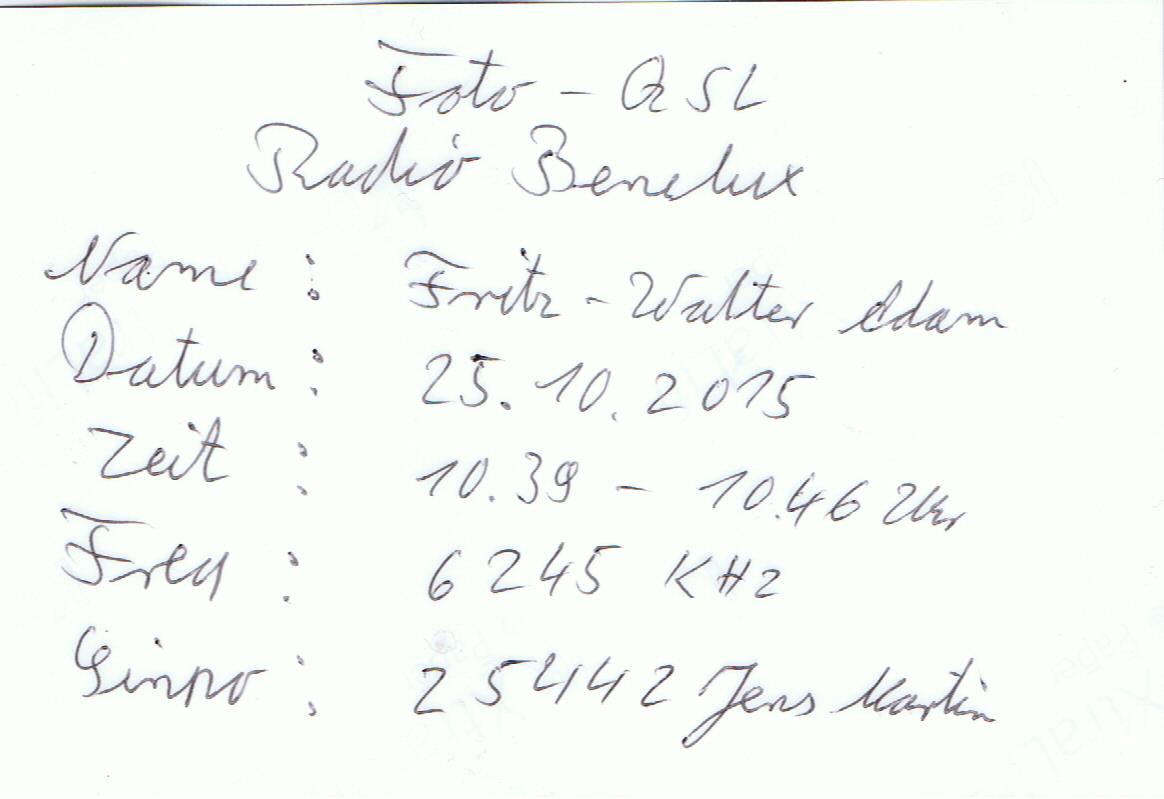 Foto - QSL
Radio Benelux
Name : Fritz - Walter Adam
Datum : 25.10.2015
Zeit : 10.39 - 10.46 Uhr
Freq : 6245 KHz
Sinpo : 25442 Jens Martin